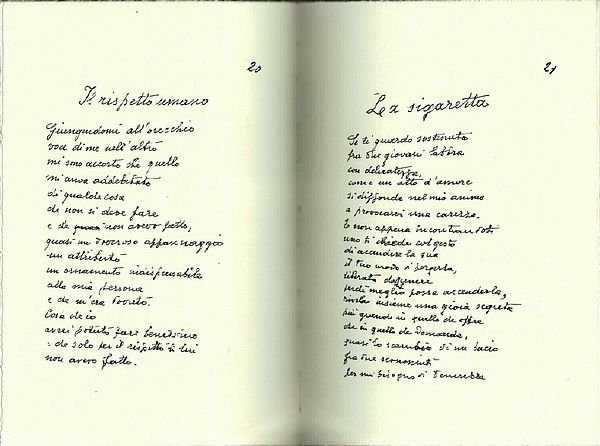 20
Il rispetto umano
Giungendomi all'orecchio
voce di me nell'altro
mi sono accorto che quello
mi aveva addebitato
di qualche cosa
che non si deve fare
e che non avevo fatto,
quasi un doveroso appannaggio
un attributo
un ornamento indispensabile
alla mia persona
e che m'era dovuto.
Cosa che io
avrei potuto fare benissimo
e che solo per il rispetto di lui
non avevo fatto.
21
La sigaretta
Se ti guardo sostenuta
fra due giovani labbra
con delicatezza,
come un atto d'amore
si diffonde nel mio animo
a provocarvi una carezza.
E non appena incontrandoti
uno ti chiede col gesto
di accendere la sua
il tuo modo di porgerla,
liberata
perché meglio possa accenderla,
rivela insieme una gioia segreta
più quando in quello che offre
che in quello che domanda,
quasi lo scambio di un bacio
fra due sconosciuti
bisogno di tenerezza